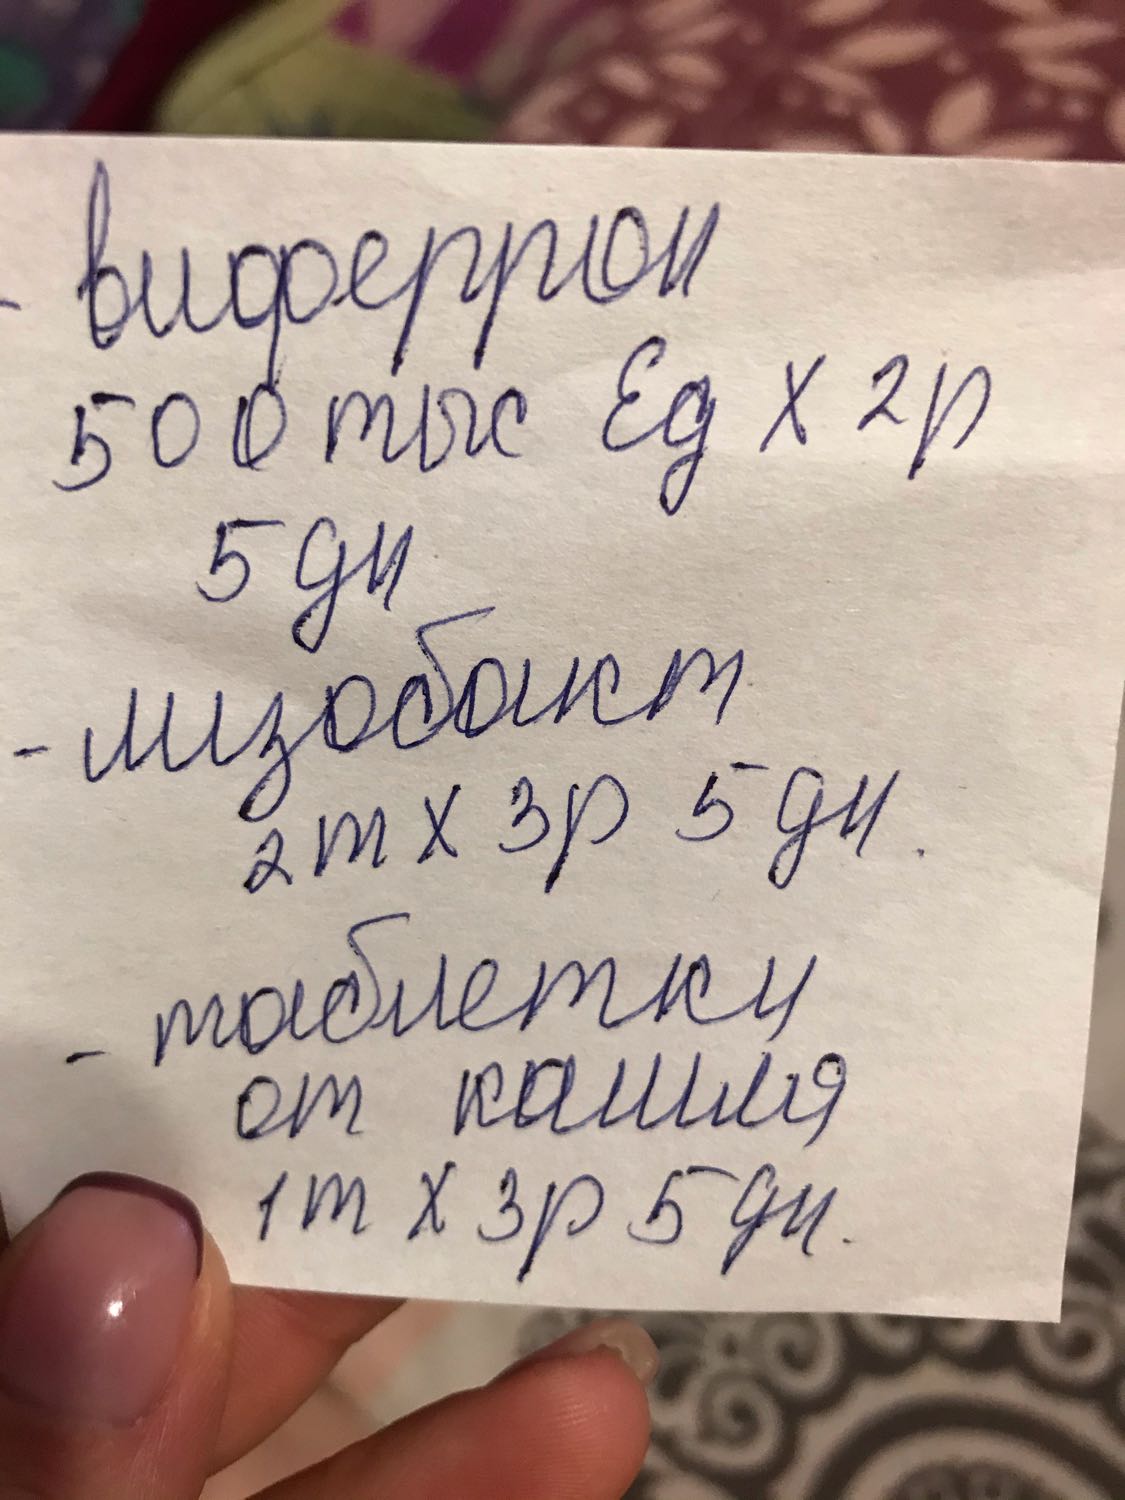 - Виферрон
500 тыс Ед х 2р
5 дн
- лизобакт
2т х 3р 5 дн.
- таблетки
от кашля
1т х 3р 5 дн.